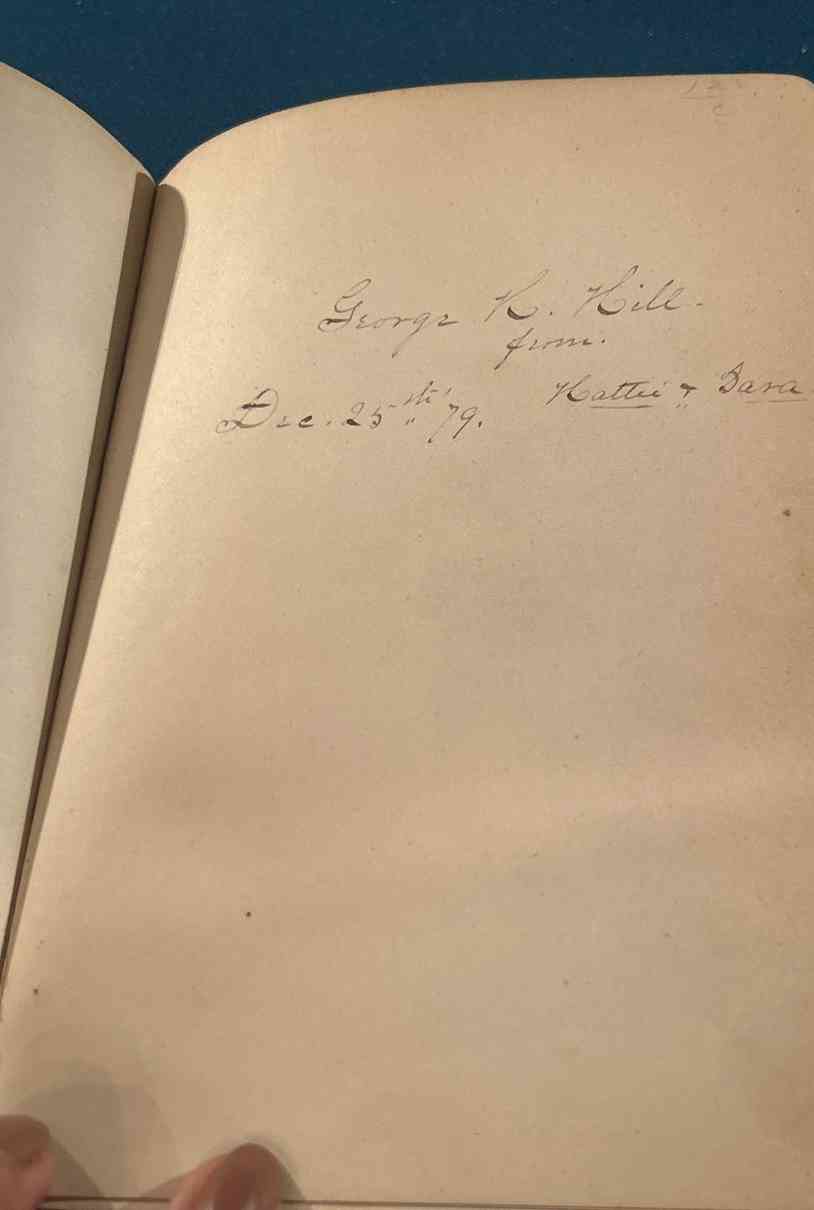 George K. Hill.
from.
Hattie & Sara
Dec. 25th '79.